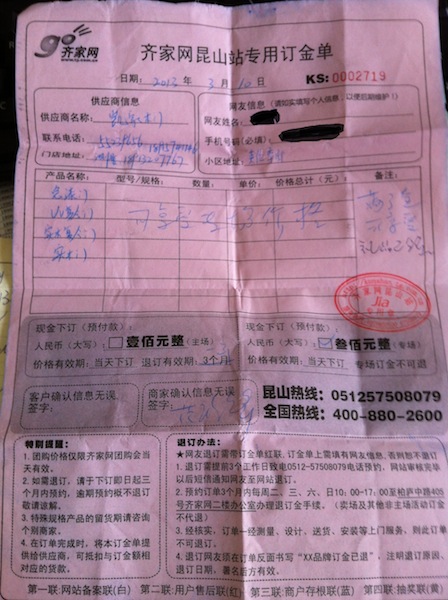 go 齐家网
齐家网昆山站专用订金单
日期: 2013 年 3 月 10 日 KS: 0002719
供应商信息
供应商名称:
联系电话:
门店地址:
网友信息 (请如实填写个人信息,以便后期维护!)
网友姓名:
手机号码(必填):
小区地址:
产品名称: 型号/规格: 数量: 单价: 价格总计(元): 备注:
Jia
现金下订(预付款)
人民币(大写):□壹佰元整(主场)
价格有效期: 当天下订 退订有效期: 3个月
现金下订(预付款)
人民币(大写):☑叁佰元整(专场)
价格有效期: 当天下订 专场订金不可退
客户确认信息无误
签字:
商家确认信息无误
签字:
昆山热线: 051257508079
全国热线: 400-880-2600
特别提醒:
1. 团购价格仅限齐家网团购会当天有效。
2. 如需退订, 请于下订即日起三个月内预约, 逾期预约概不退订敬请谅解。
3. 特殊规格产品的留货期请咨询个别商家。
4. 在订单完成时, 将本订金单提供给供应商, 可抵扣与订金额相对应的货款。
退订办法:
★网友退订需带订金单红联, 订金单上需填有网友信息, 否则恕不退订
1. 退订需提前3个工作日致电0512-57508079电话预约, 网站审核完毕以后短信通知网友至网站退订。
2. 预约订单3个月内每周二、三、六、日10:00-17:00至柏庐中路405号齐家网二楼办公室办理退订金手续。(卖场及其他非主场活动订金不代退)
3. 经核实, 订单一经测量、设计、送货、安装等上门服务, 则此订单不可退订。
4. 退订网友须在订单反面书写“XX品牌订金已退”, 注明退订原因、退订日期、署名后方有效。
第一联:网站备案联(白) 第二联:用户售后联(红) 第三联:商户存根联(蓝) 第四联:抽奖联(黄)